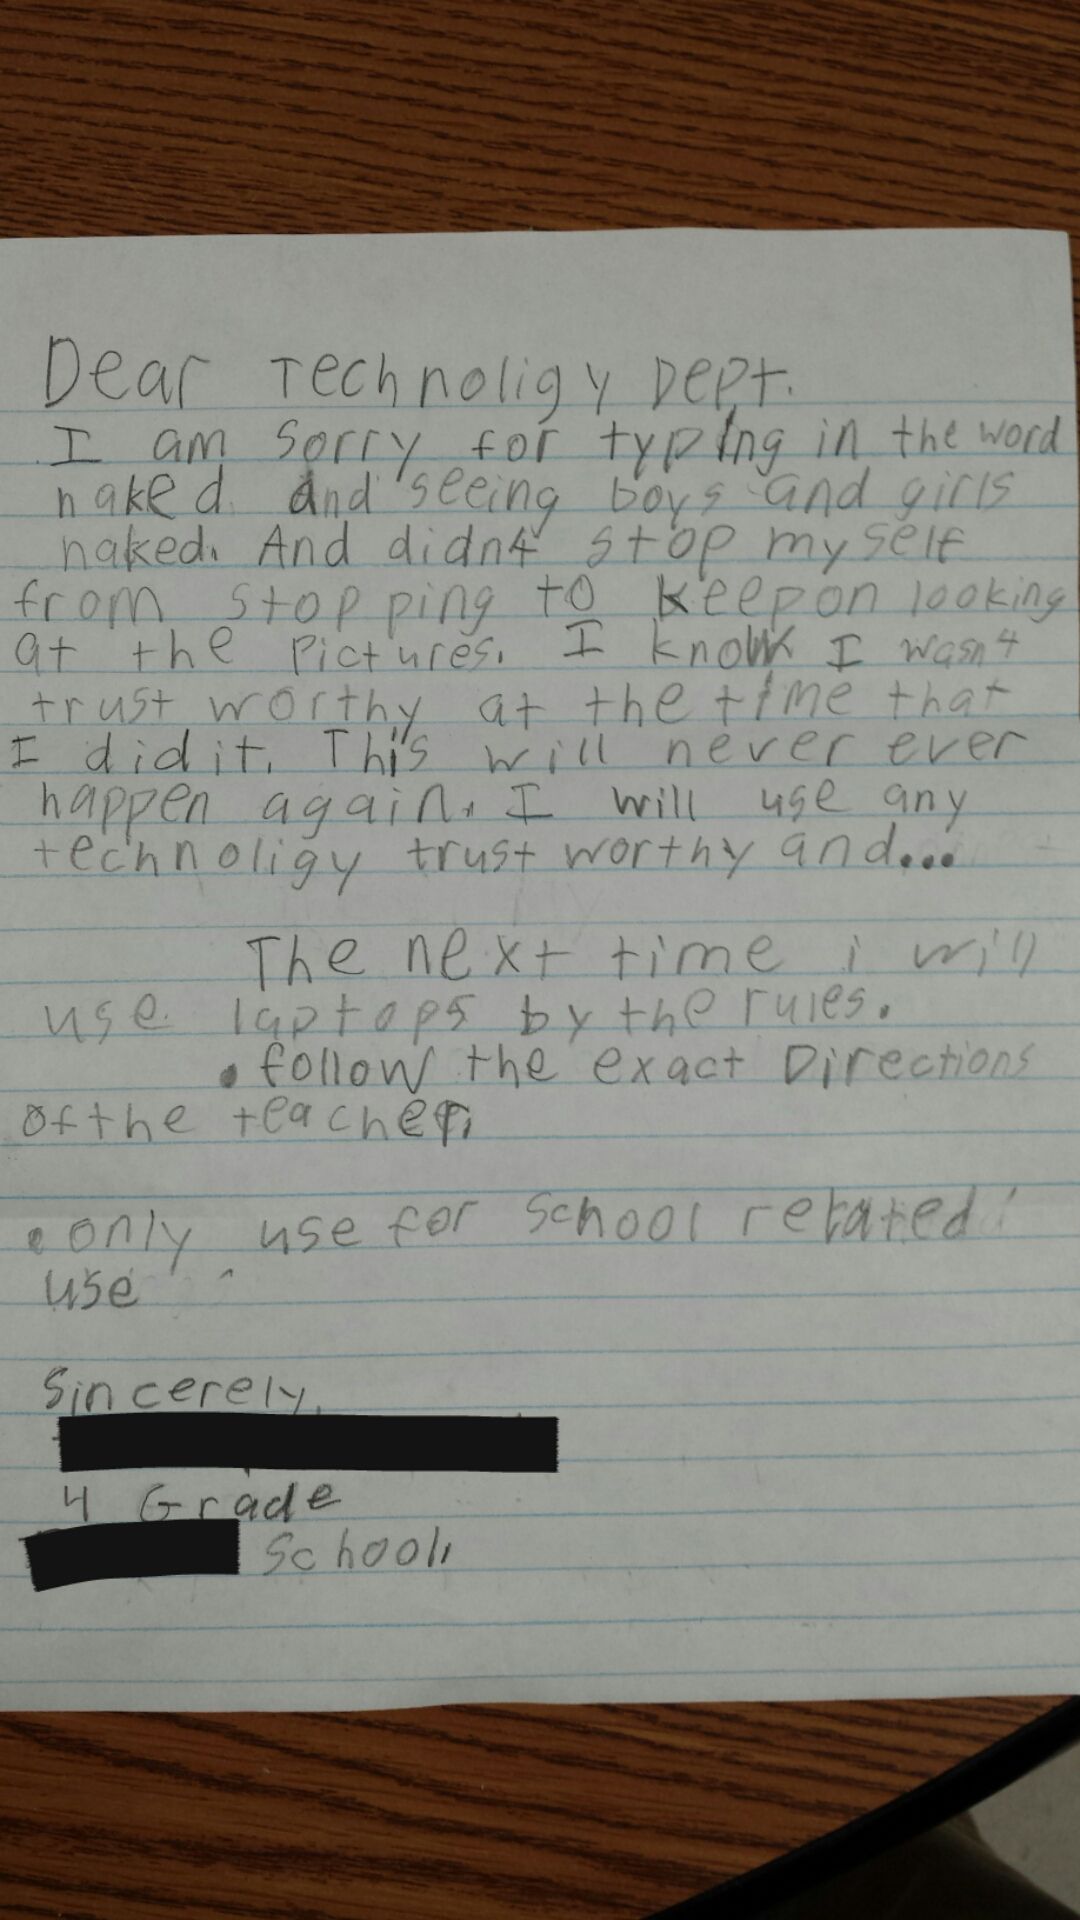 Dear Technoligy Dept.
I am sorry for typing in the word
naked. And seeing boys and girls
naked. And didn4 stop my self
from stopping to keep on looking
at the pictures. I know I wasn4
trust worthy at the time that
I did it. This will never ever
happen again. I will use any
technoligy trust worthy and...
The next time i will
use laptops by the rules.
• follow the exact Directions
of the teacher.
• only use for school related
use
Sincerely,
4 Grade
School